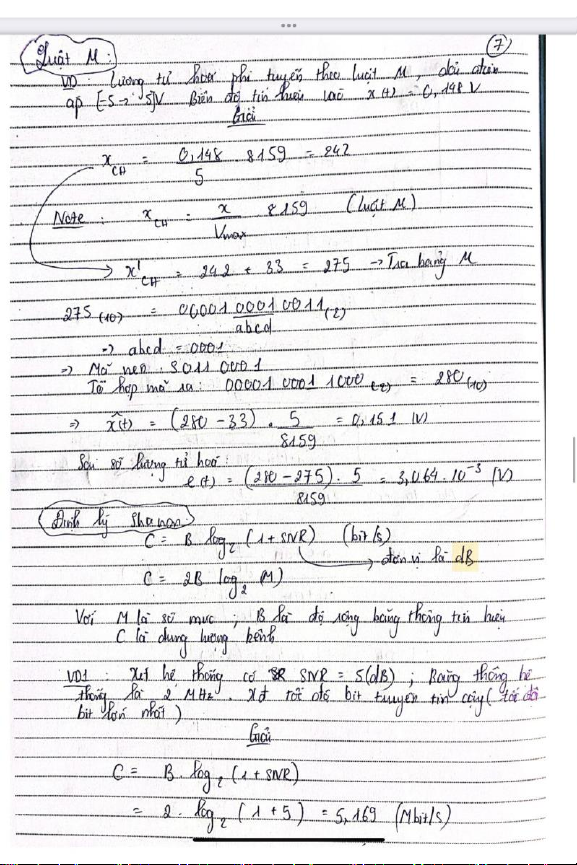 7
Luật M :
VD : Lượng tử hoá phi tuyến theo luật M, dải điện
áp [-5 → 5]V Biên độ tín hiệu vào x(t) = 0,148 V
Giải
x_CH = 0,148 / 5 . 8159 = 242
Note : x_CH = x / Vmax 8159 (luật M)
→ x'_CH = 242 + 33 = 275 → Tra bảng M
275 (10) = 00001 0001 0011 (2)
abcd
=> abcd = 0001
=> Mã nén : S011 0001
Tổ hợp mã ra : 00001 0001 1000 (2) = 280 (10)
=> x̂(t) = (280 - 33) . 5 / 8159 = 0,151 (V)
Sai số lượng tử hoá :
e(t) = (280 - 275) . 5 / 8159 = 3,064 . 10⁻³ (V)
Định lý Shanon
C = B log₂ (1 + SNR) (bit/s)
→ đơn vị là dB
C = 2B log₂ (M)
Với M là số mức ; B là độ rộng băng thông tín hiệu
C là dung lượng kênh
VD1 : Xét hệ thống có SNR = 5(dB) ; Băng thông hệ
thống là 2 MHz . Xđ tốc độ bit truyền tin cậy ( tốc độ
bit lớn nhất )
Giải
C = B . log₂ (1 + SNR)
= 2 . log₂ ( 1 + 5 ) = 5,169 (Mbit/s)